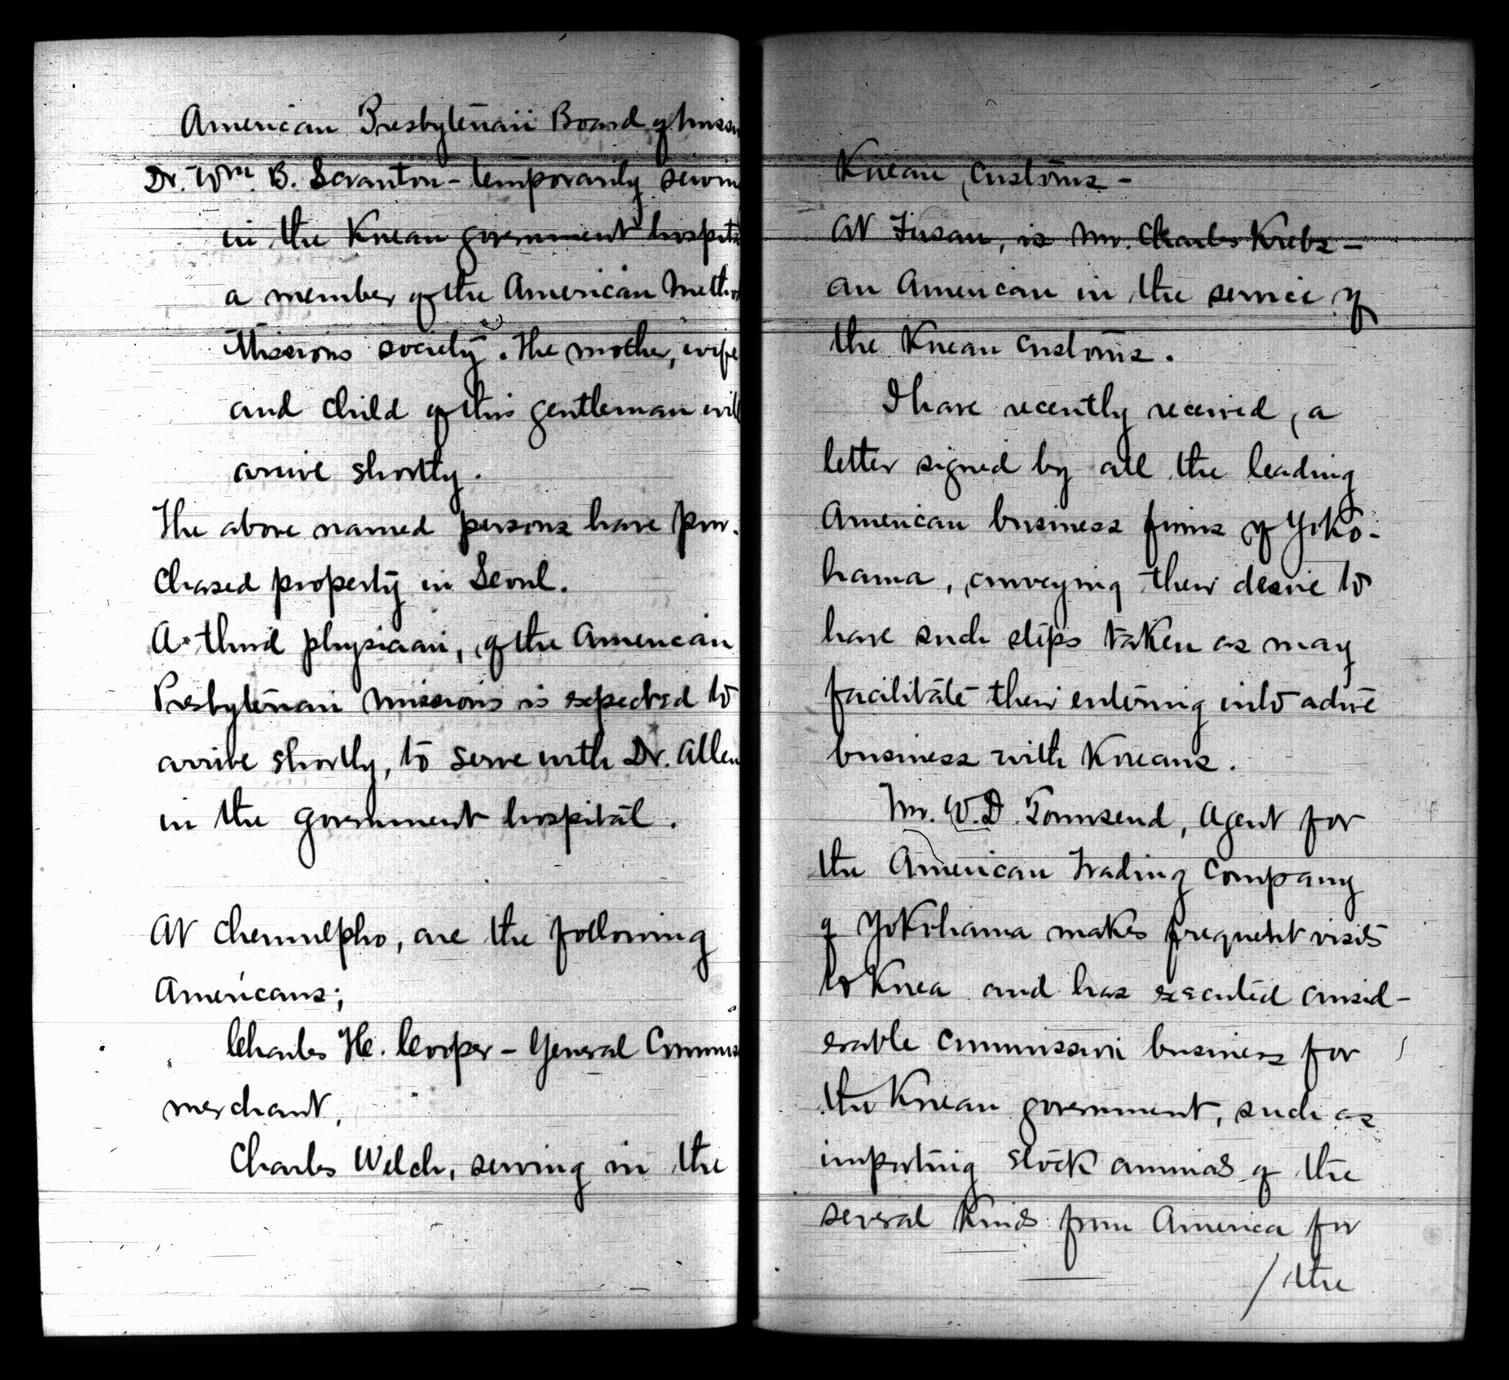 American Presbyterian Board of Mission
Dr. Wm. B. Scranton - temporarily servin
in the Korean government hospita
a member of the American Metho
Missions society. The mother, wife
and child of this gentleman will
arrive shortly.
The above named persons have pur-
chased property in Seoul.
A third physician, of the American
Presbyterian Missions is expected to
arrive shortly, to serve with Dr. Allen
in the government hospital.
At Chemulpho, are the following
Americans;
Charles H. Cooper - General Commis
merchant,
Charles Welch, serving in the
Korean Customs -
At Fusan, is Mr. Charles Krebs -
an American in the service of
the Korean Customs.
I have recently received, a
letter signed by all the leading
American business firms of Yoko-
hama, conveying their desire to
have such steps taken as may
facilitate their entering into active
business with Koreans.
Mr. W. D. Townsend, Agent for
the American Trading Company
of Yokohama makes frequent visits
to Korea and has executed consid-
erable commission business for
the Korean government, such as
importing stock animals of the
several kinds from America for
/ the